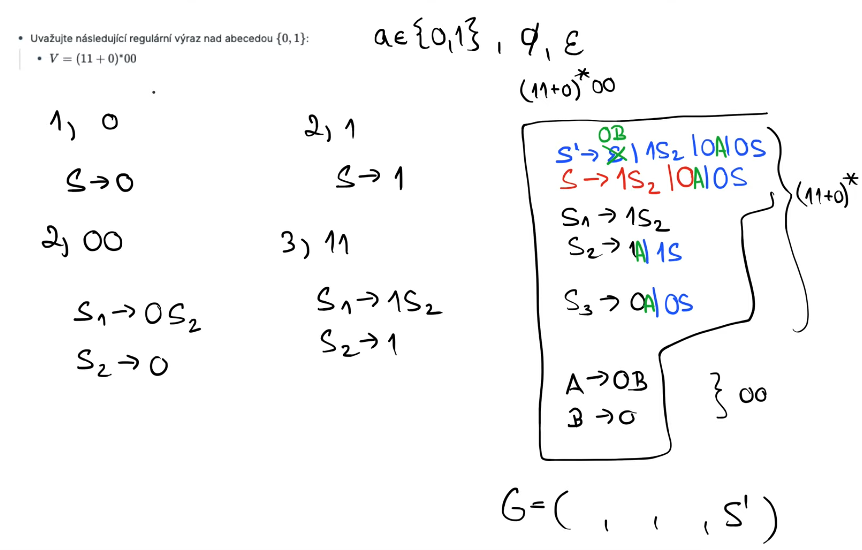 • Uvažujte následující regulární výraz nad abecedou {0, 1}:
• V = (11 + 0)*00
a∈{0,1}, ∅, ε
(11+0)*00
1) 0
S→0
2) 1
S→1
2) 00
S₁→0S₂
S₂→0
3) 11
S₁→1S₂
S₂→1
0B
S'→ε|1S₂|0A|0S
S→1S₂|0A|0S
S₁→1S₂
S₂→1A|1S
S₃→0A|0S
(11+0)*
A→0B
B→0
} 00
G=( , , , S')